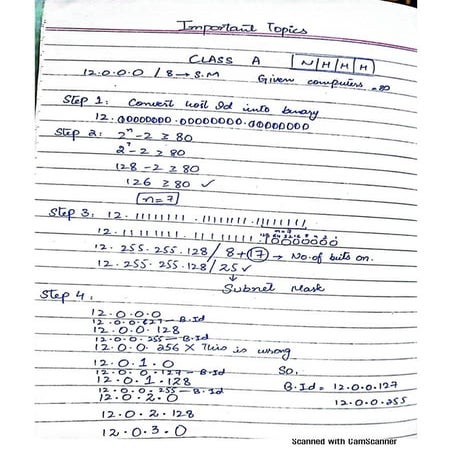 Important Topics
CLASS A N H H H
12.0.0.0 / 8 → S.M Given computers = 80
Step 1: Convert host Id into binary
12.00000000.00000000.00000000
Step 2: 2ⁿ-2 ≥ 80
2⁷-2 ≥ 80
128-2 ≥ 80
126 ≥ 80 ✓
n=7
Step 3: 12.11111111.11111111.11111111
n=7
12.11111111.11111111.10000000
12.255.255.128/8+17 → No.of bits on.
12.255.255.128/25 ✓
↓
Subnet Mask
Step 4:
12.0.0.0
12.0.0.127 - B.Id
12.0.0.128
12.0.0.255 - B.Id
12.0.0.256 × This is wrong
12.0.1.0 So,
12.0.0.127 - B.Id
12.0.1.128 B.Id = 12.0.0.127
12.0.0.255 - B.Id
12.0.2.0 12.0.0.255
12.0.2.128
12.0.3.0
Scanned with CamScanner